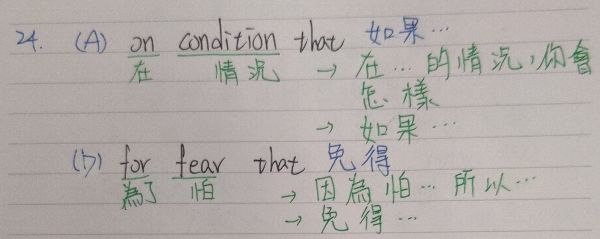 24. (A) on condition that 如果…
在 情況 → 在…的情況,你會
怎樣
→ 如果…
(D) for fear that 免得
為了 怕 → 因為怕…所以…
→ 免得…